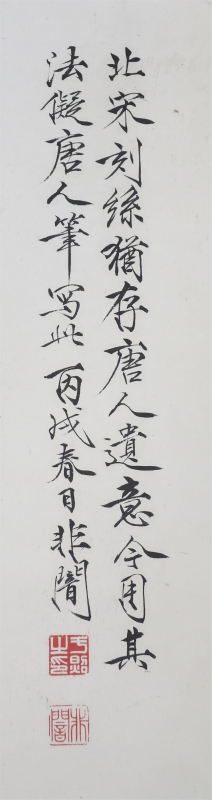 北宋刻絲猶存唐人遺意今用其
法儗唐人筆寫此丙戌春日非闇
于照之印
非闇